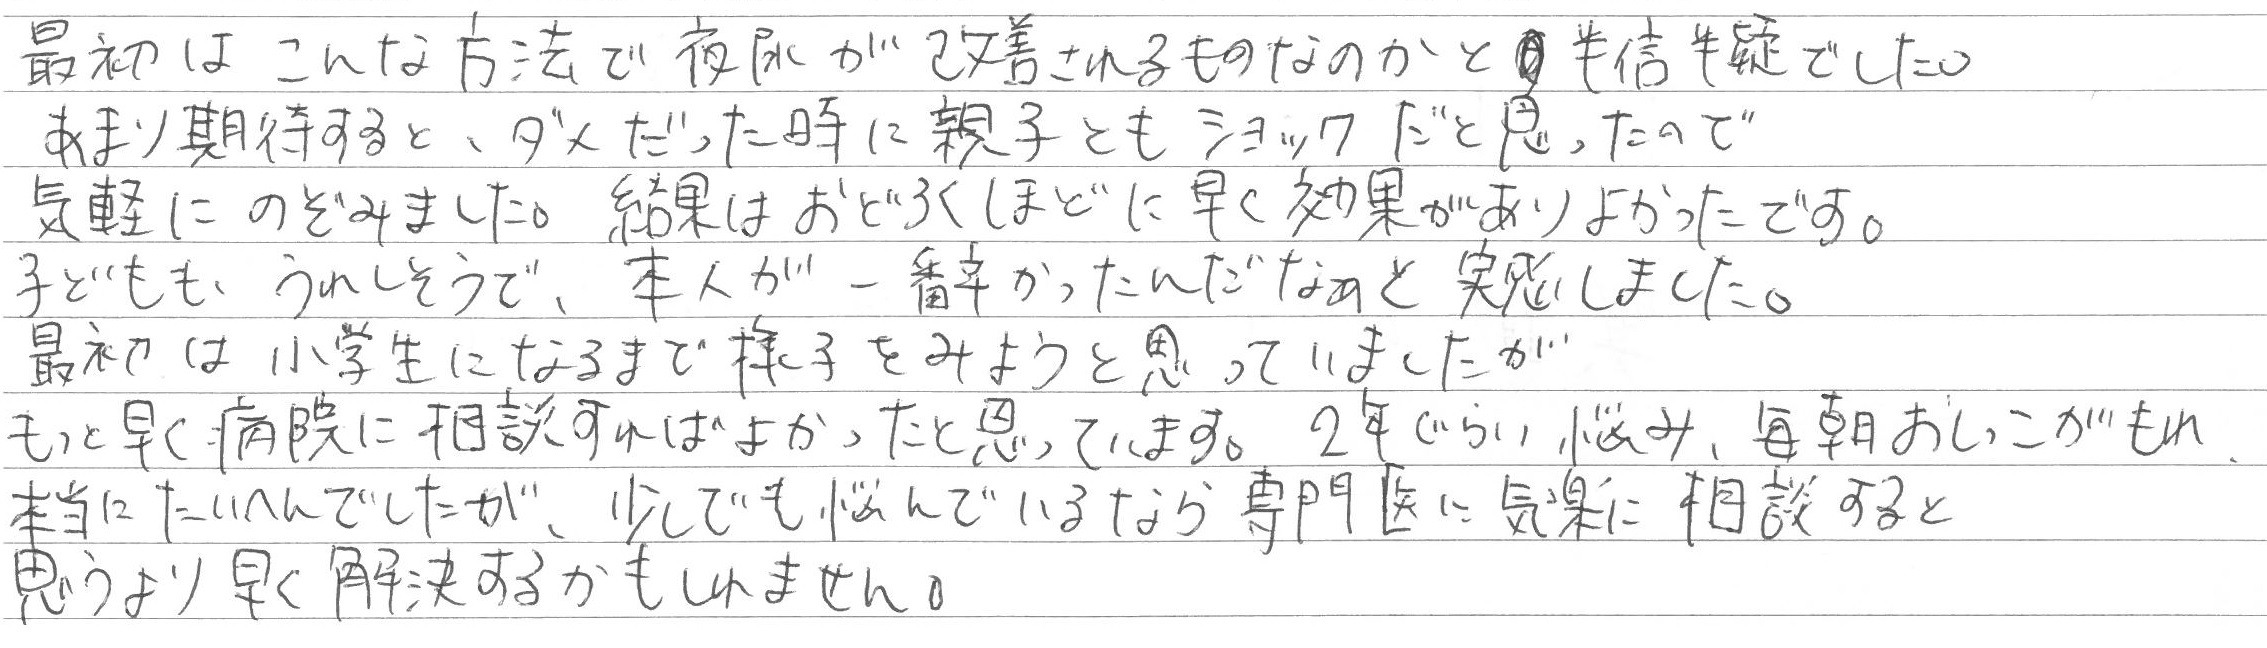 最初は こんな方法で夜尿が改善されるものなのかと半信半疑でした。
あまり期待すると、ダメだった時に親子ともショックだと思ったので
気軽にのぞみました。結果はおどろくほどに早く効果がありよかったです。
子どもも、うれしそうで、本人が一番辛かったんだなぁと実感しました。
最初は小学生になるまで様子をみようと思っていましたが
もっと早く病院に相談すればよかったと思っています。2年ぐらい悩み、毎朝おしっこがもれ、
本当にたいへんでしたが、少しでも悩んでいるなら専門医に気楽に相談すると
思うより早く解決するかもしれません。